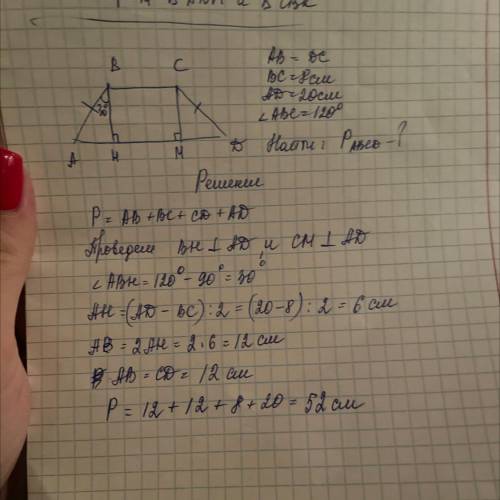 B C
30°
A H M D
AB = DC
BC = 8 см
AD = 20 см
∠ABC = 120°
Найти: P ABCD - ?
Решение
P = AB + BC + CD + AD
Проведем BH ⊥ AD и CM ⊥ AD
∠ABH = 120° - 90° = 30°
AH = (AD - BC) : 2 = (20 - 8) : 2 = 6 см
AB = 2AH = 2·6 = 12 см
AB = CD = 12 см
P = 12 + 12 + 8 + 20 = 52 см